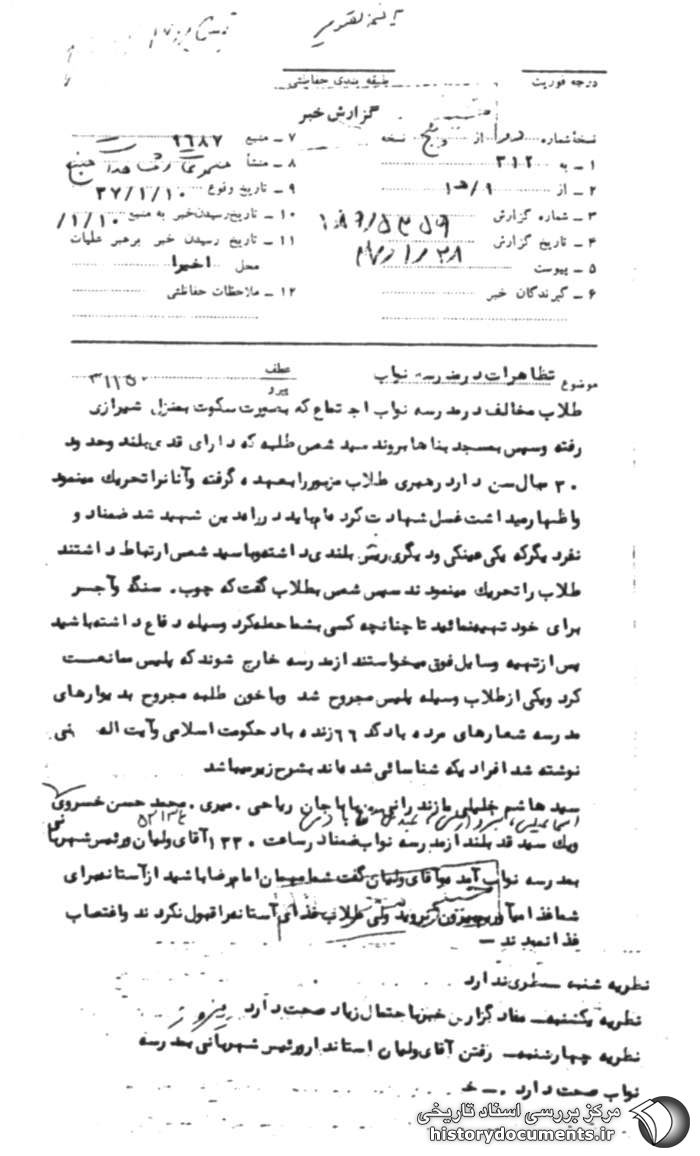 درجه فوریت
طبقه بندی حفاظتی
گزارش خبر
نسخه شماره دو از پنج نسخه
۱ ـ به ۳۱۲
۲ ـ از ۹/ه۱
۳ ـ شماره گزارش
۴ ـ تاریخ گزارش
۵ ـ پیوست
۶ ـ گیرندگان خبر
۷ ـ منبع ۹٦۸۷
۸ ـ منشأ
۹ ـ تاریخ وقوع ۳۷/۱/۱۰
۱۰ ـ تاریخ رسیدن خبر به منبع ۱/۱۰/
۱۱ ـ تاریخ رسیدن خبر برهبر عملیات
محل اخیرا
۱۲ ـ ملاحظات حفاظتی
موضوع تظاهرات در مدرسه نواب
عطف
پیرو
طلاب مخالف در مدرسه نواب اجتماع که بصورت سکوت بمنزل شیرازی
رفته وسپس بمسجد بناها بروند سید شمس طلبه که دارای قدی بلند وحدود
۳۰ سال سن دارد رهبری طلاب مزبوررا بعهده گرفته وآنانرا تحریك مینمود
واظهار میداشت غسل شهادت کرده ام باید در راه دین شهید شد ضمنا دو
نفر دیگر که یکی عینکی ودیگری ریش بلندی داشته وبا سید شمس ارتباط داشتند
طلاب را تحریك مینمودند سپس شمس بطلاب گفت که چوب . سنگ وآجر
برای خود تهیه نمائید تا چنانچه کسی بشما حمله کرد وسیله دفاع داشته باشید
پس از تهیه وسایل فوق میخواستند از مدرسه خارج شوند که پلیس ممانعت
کرد ویکی از طلاب وسیله پلیس مجروح شد وبا خون طلبه مجروح بدیوارهای
مدرسه شعارهای مرده باد کد ٦٦ زنده باد حکومت اسلامی وآیت اله نی
نوشته شد افرادیکه شناسائی شده اند بشرح زیر میباشد
سید هاشم خلیلی مازندرانی باباجان ریاحی . میری . محمد حسن خسروی
ویك سید قد بلند از مدرسه نواب ضمنا در ساعت ۱۳۳۰ آقای ولیان ورئیس شهربانی
بمدرسه نواب آمده وآقای ولیان گفت شما مهمان امام رضا باشید از آستانه برای
شما غذا میآوریم بیرون نروید ولی طلاب غذای آستانه را قبول نکردند واعتصاب
غذا نمودند ـ
نظریه شنبه ـ نظری ندارد
نظریه یکشنبه ـ مفاد گزارش خبر باحتمال زیاد صحت دارد
نظریه چهارشنبه ـ رفتن آقای ولیان استاندار ورئیس شهربانی بمدرسه
نواب صحت دارد . ـ خ
مرکز بررسی اسناد تاریخی
historydocuments.ir